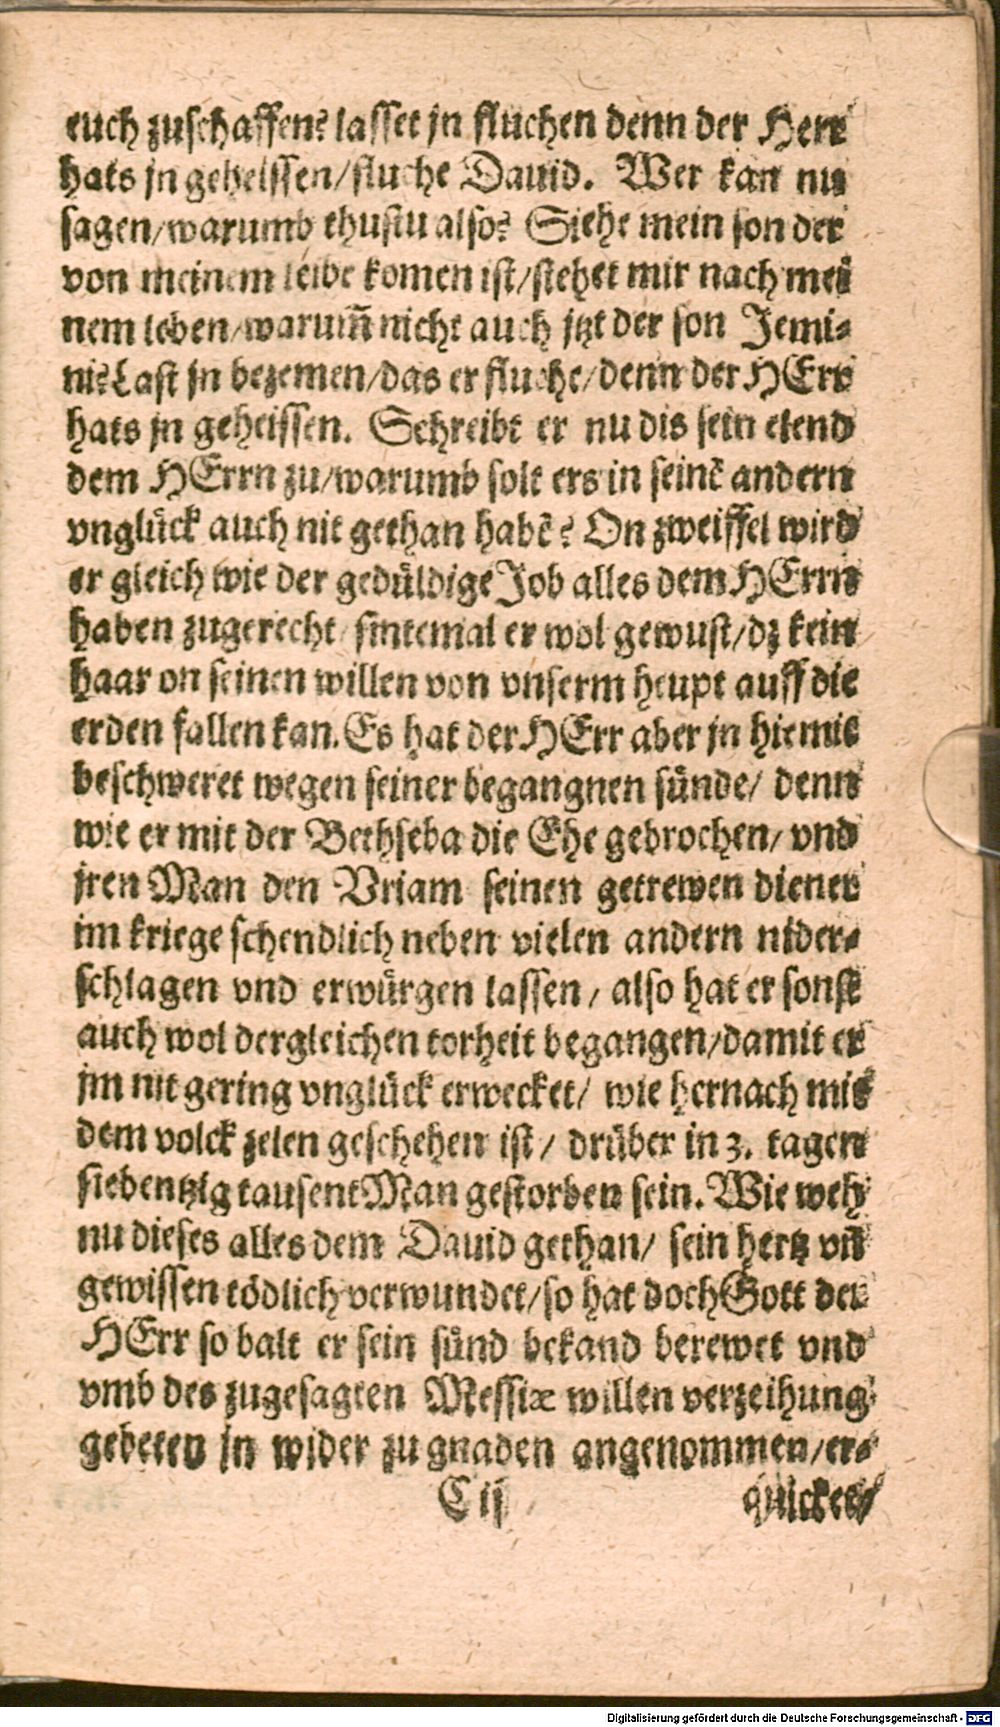 euch zuschaffen? lasset jn fluchen denn der Herr
hats jn geheissen/fluche Dauid. Wer kan nu
sagen/warumb thustu also? Siehe mein son der
von meinem leibe komen ist/stehet mir nach mei
nem leben/warum̃ nicht auch jtzt der son Jemi-
ni? Last jn bezemen/das er fluche/denn der HErr
hats jn geheissen. Schreibt er nu dis sein elend
dem HErrn zu/warumb solt ers in seinẽ andern
vnglück auch nit gethan habẽ? On zweiffel wird
er gleich wie der gedüldige Job alles dem HErrn
haben zugerecht/sintemal er wol gewust/dz kein
haar on seinen willen von vnserm heupt auff die
erden fallen kan. Es hat der HErr aber jn hiemit
beschweret wegen seiner begangnen sünde/ denn
wie er mit der Bethseba die Ehe gebrochen/ vnd
jren Man den Vriam seinen getrewen diener
im kriege schendlich neben vielen andern nider-
schlagen vnd erwürgen lassen/ also hat er sonst
auch wol dergleichen torheit begangen/damit er
jm nit gering vnglück erwecket/ wie hernach mit
dem volck zelen geschehen ist/ drüber in 3. tagen
siebentzig tausent Man gestorben sein. Wie weh
nu dieses alles dem Dauid gethan/ sein hertz vñ
gewissen tödlich verwundet/so hat doch Gott der
HErr so balt er sein sünd bekand berewet vnd
vmb des zugesagten Messiæ willen verzeihung
gebeten jn wider zu gnaden angenommen/er-
C ij quicket/
Digitalisierung gefördert durch die Deutsche Forschungsgemeinschaft - DFG